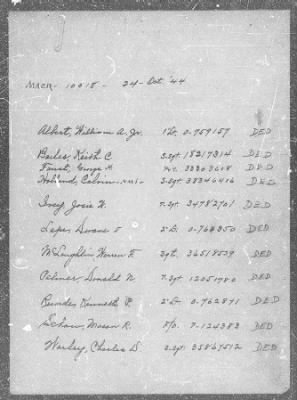 MACR- 10018 - 24-Oct '44
Albert, William A. Jr. 1Lt. 0-759157 DED
Bailes, Keith C S.Sgt 18217314 DED
Faust, George M. DED
Holland, Calvin (NMI) S.Sgt 38346416 DED
Ivey, Josie W. T.Sgt 34782701 DED
Duane E 2Lt 0-768350 DED
McLaughlin Warren F. Sgt. 36518539 DED
Palmer, Donald N T.Sgt 12051780 DED
Kenneth P. 2Lt 0-762871 DED
Mason R. F/O. T-124383 DED
Worley, Charles D. S.Sgt 35867512 DED